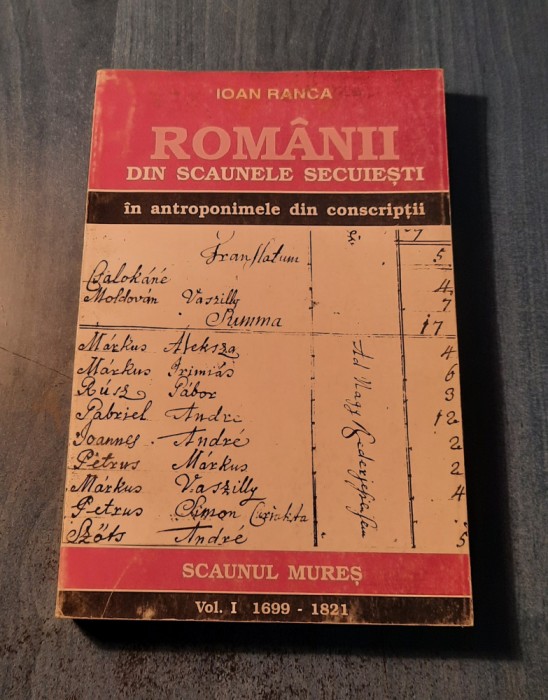 IOAN RANCA
ROMÂNII
DIN SCAUNELE SECUIEȘTI
în antroponimele din conscripții
17
Translatum 5
Csalokáné 4
Moldován Vaszilly 7
Summa 17
Márkus Aleksza 4
Márkus Irimiás 6
Rúsz Gábor 3
Gabriel Andre 12
Joannes André 2
Petrus Márkus 2
Márkus Vaszilly 4
Petrus Simon
Szőts André 5
Ad Nagy
SCAUNUL MUREȘ
Vol. I 1699 - 1821